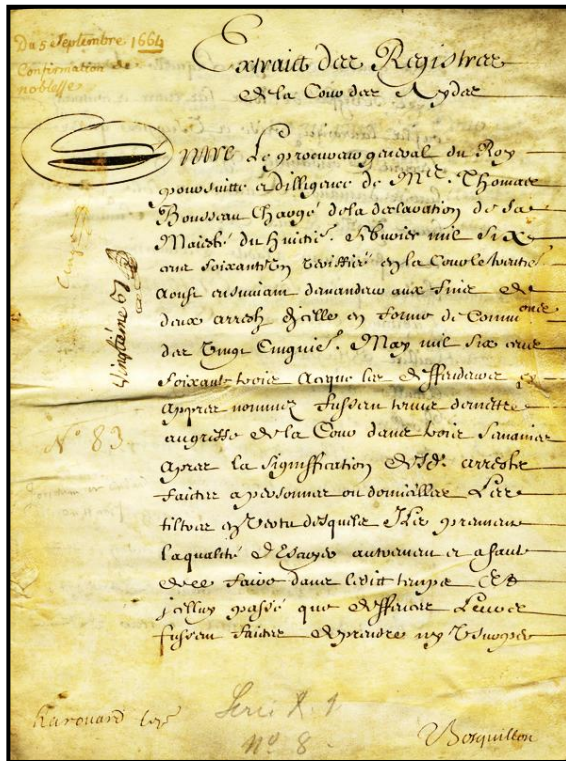 Du 5 Septembre 1664
Confirmation de
noblesse
Extraict des Registres
de la Cour des Aydes
Entre Le procureur general du Roy
poursuitte et dilligence de Mre. Thomas
Bousseau Chargé de la declaration de sa
Maiesté du huictie. febvrier mil six
cens soixante un veriffié en la Cour le trentie.
aoust ensuivant demandeur aux fins de
deux arrests dicelle en forme de Commonce
des Vingt Cinquie. May mil six cens
soixante trois Acque les deffendeurs cy
Apres nommez fussent tenus de mettre
au greffe de la Cour dans trois semaines
Apres la signiffication desd. arrests
faictes a personnes ou domicilles Les
tiltres en Vertu desquels Ils prennent
la qualité d'Escuyer autrement et a faute
de ce faire dans ledict temps Et
jcelluy passé que deffences Leur
fussent faictes de prendre
Vingtaine
N° 83
Serie
n° 8
Bosquillon